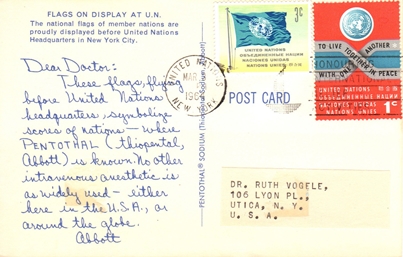 FLAGS ON DISPLAY AT U.N.
The national flags of member nations are
proudly displayed before United Nations
Headquarters in New York City.
Dear Doctor:
These flags, flying
before United Nations
headquarters, symbolize
scores of nations – where
PENTOTHAL (thiopental,
Abbott) is known. No other
intravenous anesthetic is
as widely used – either
here in the U.S.A., or
around the globe.
Abbott
PENTOTHAL® SODIUM (Thiopental Sodium, Abbott)
3c
UNITED NATIONS
ОБЪЕДИНЕННЫЕ НАЦИИ
NACIONES UNIDAS
NATIONS UNIES
UNITED NATIONS
MAR
NEW YORK
POST CARD
TO LIVE TOGETHER IN
PEACE WITH ONE ANOTHER
UNITED NATIONS
ОБЪЕДИНЕННЫЕ НАЦИИ
NACIONES UNIDAS
NATIONS UNIES
1c
DR. RUTH VOGELE,
106 LYON PL.,
UTICA, N. Y.
U. S. A.